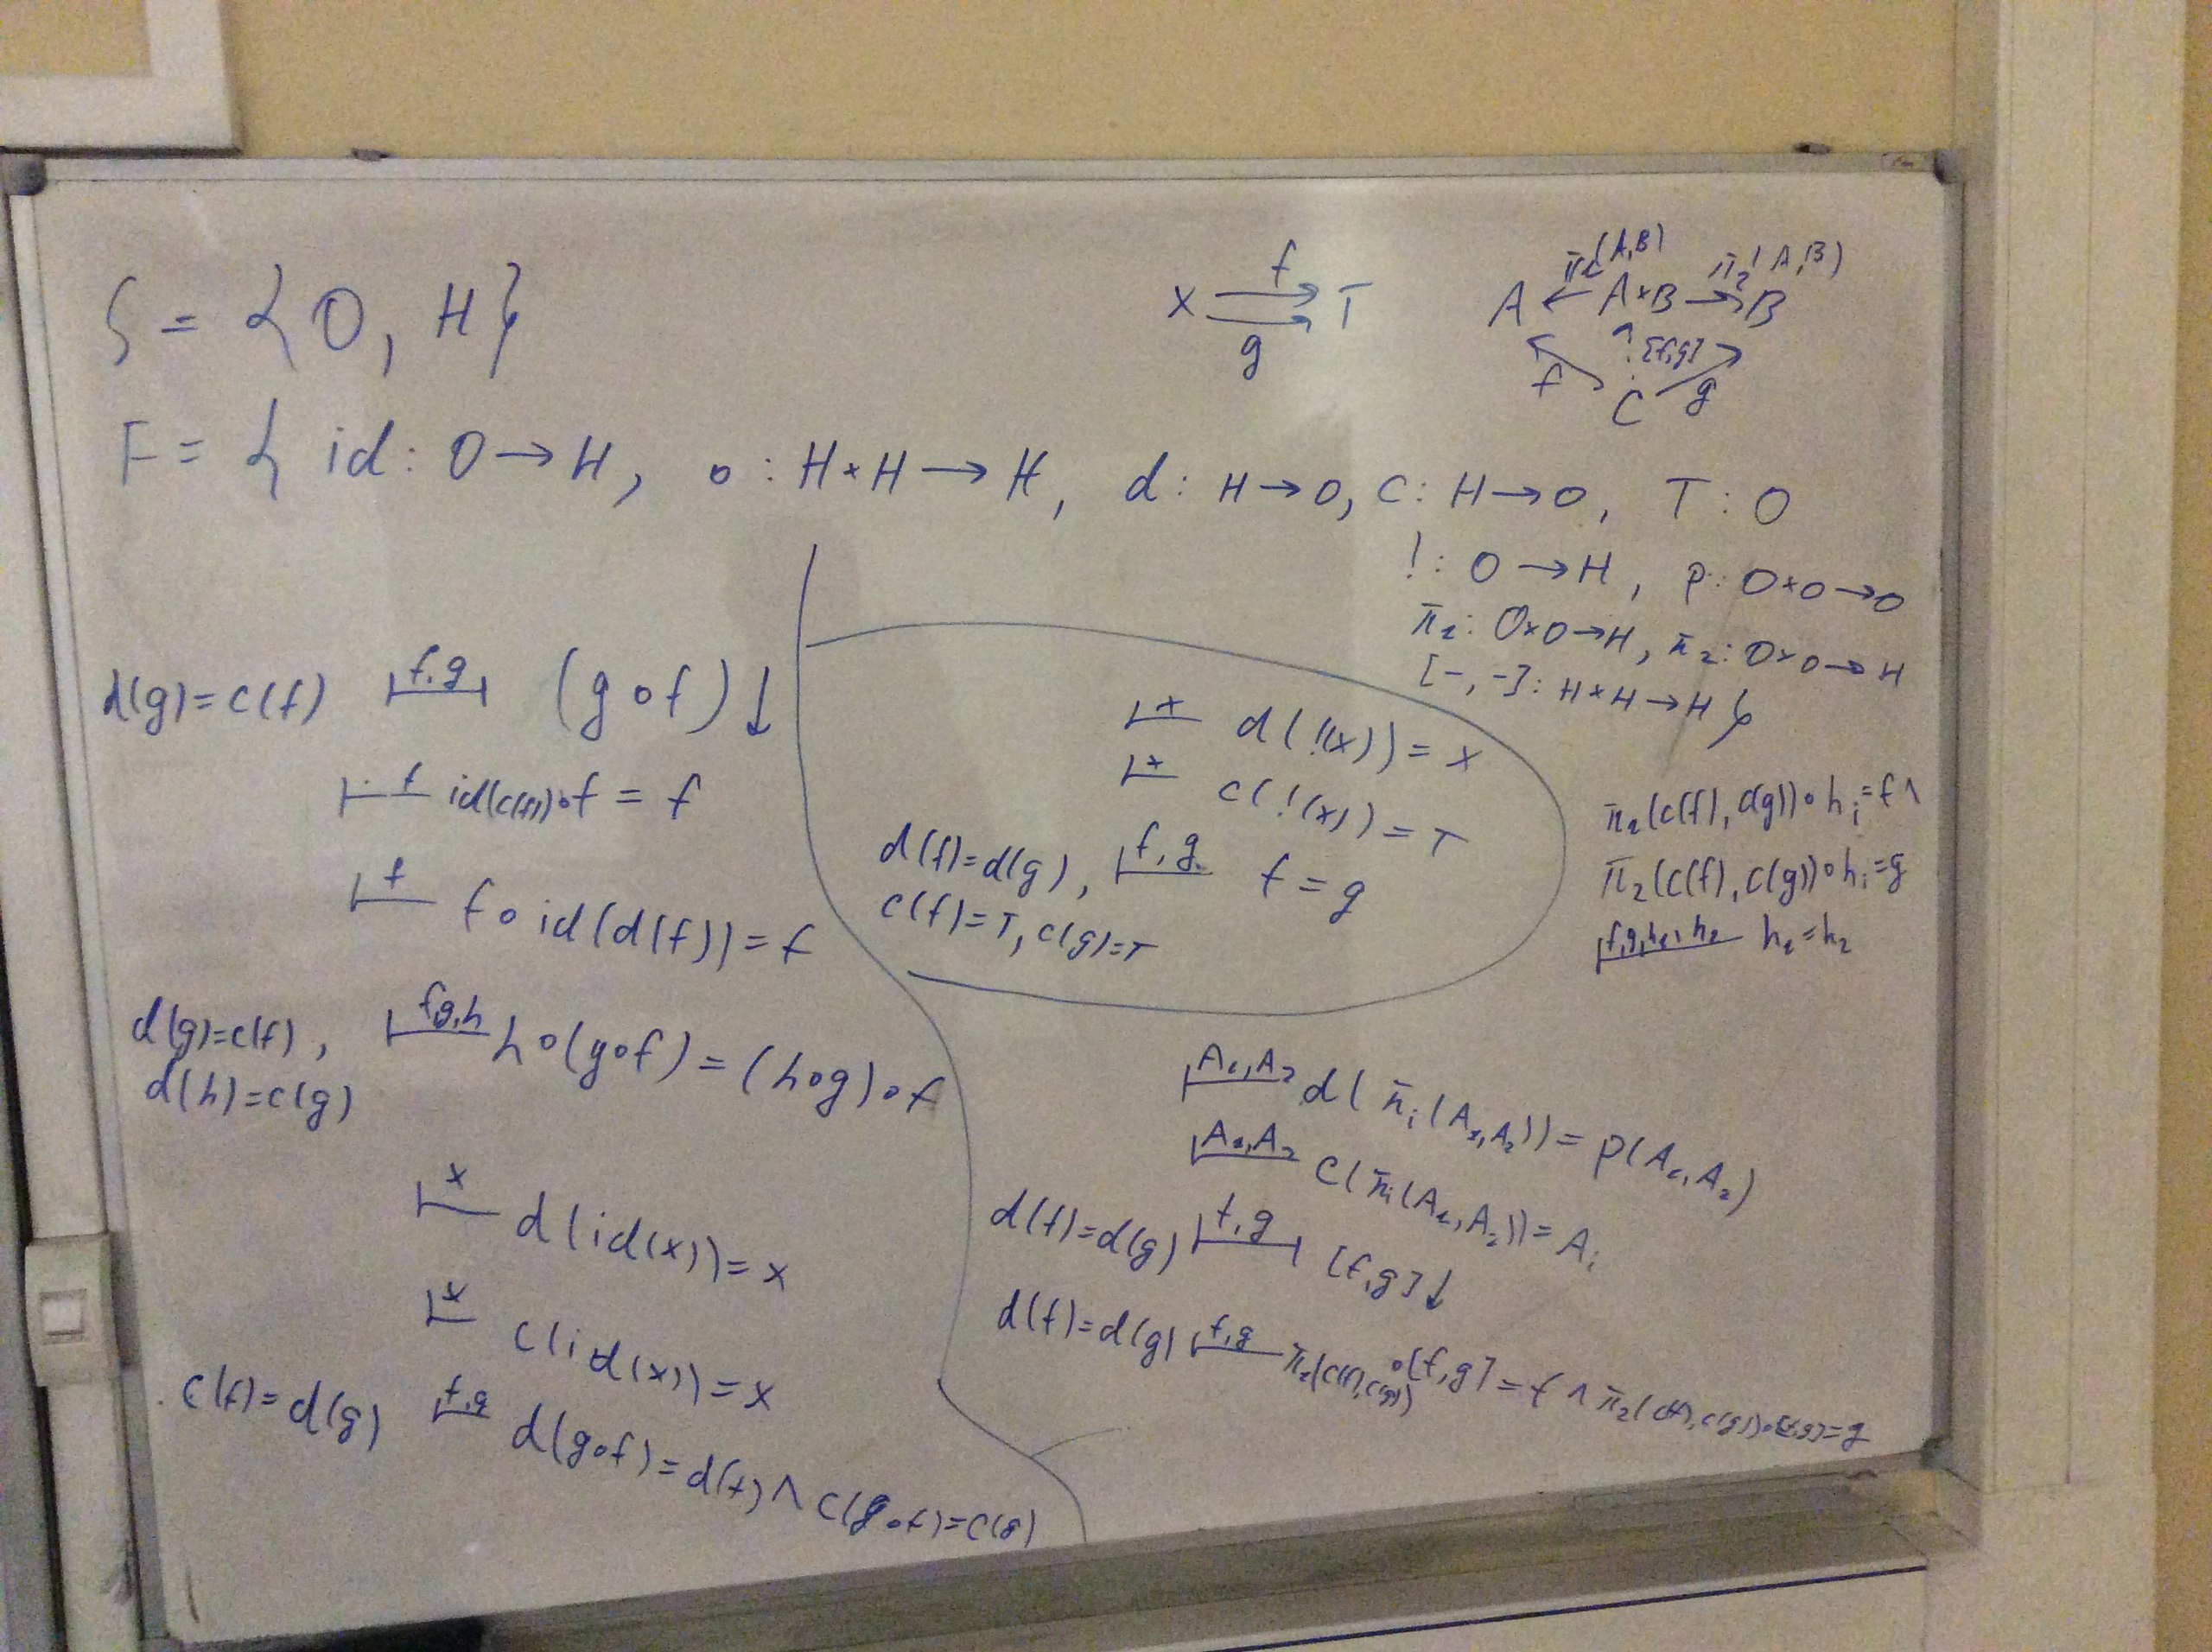 S = { O, H }
f
X ⇉ T
g
π₁(A,B) π₂(A,B)
A ← A×B → B
f [f,g] g
C
F = { id : O → H, ∘ : H×H → H, d : H → O, c : H → O, T : O
! : O → H, p : O×O → O
π₁ : O×O → H, π₂ : O×O → H
[-,-] : H×H → H }
d(g)=c(f) ⊢f,g⊣ (g∘f)↓
⊢f id(c(f))∘f = f
⊢f f∘id(d(f)) = f
d(g)=c(f), ⊢f,g,h h∘(g∘f) = (h∘g)∘f
d(h)=c(g)
⊢x d(id(x)) = x
⊢x c(id(x)) = x
c(f)=d(g) ⊢f,g d(g∘f) = d(f) ∧ c(g∘f) = c(g)
⊢x d(!(x)) = x
⊢x c(!(x)) = T
d(f)=d(g), ⊢f,g f = g
c(f)=T, c(g)=T
π₁(c(f), c(g))∘hᵢ = f ∧
π₂(c(f), c(g))∘hᵢ = g
⊢f,g,h₁,h₂ h₁ = h₂
⊢A₁,A₂ d(πᵢ(A₁,A₂)) = p(A₁,A₂)
⊢A₁,A₂ c(πᵢ(A₁,A₂)) = Aᵢ
d(f)=d(g) ⊢f,g⊣ [f,g]↓
d(f)=d(g) ⊢f,g π₁(c(f),c(g))∘[f,g] = f ∧ π₂(c(f),c(g))∘[f,g] = g